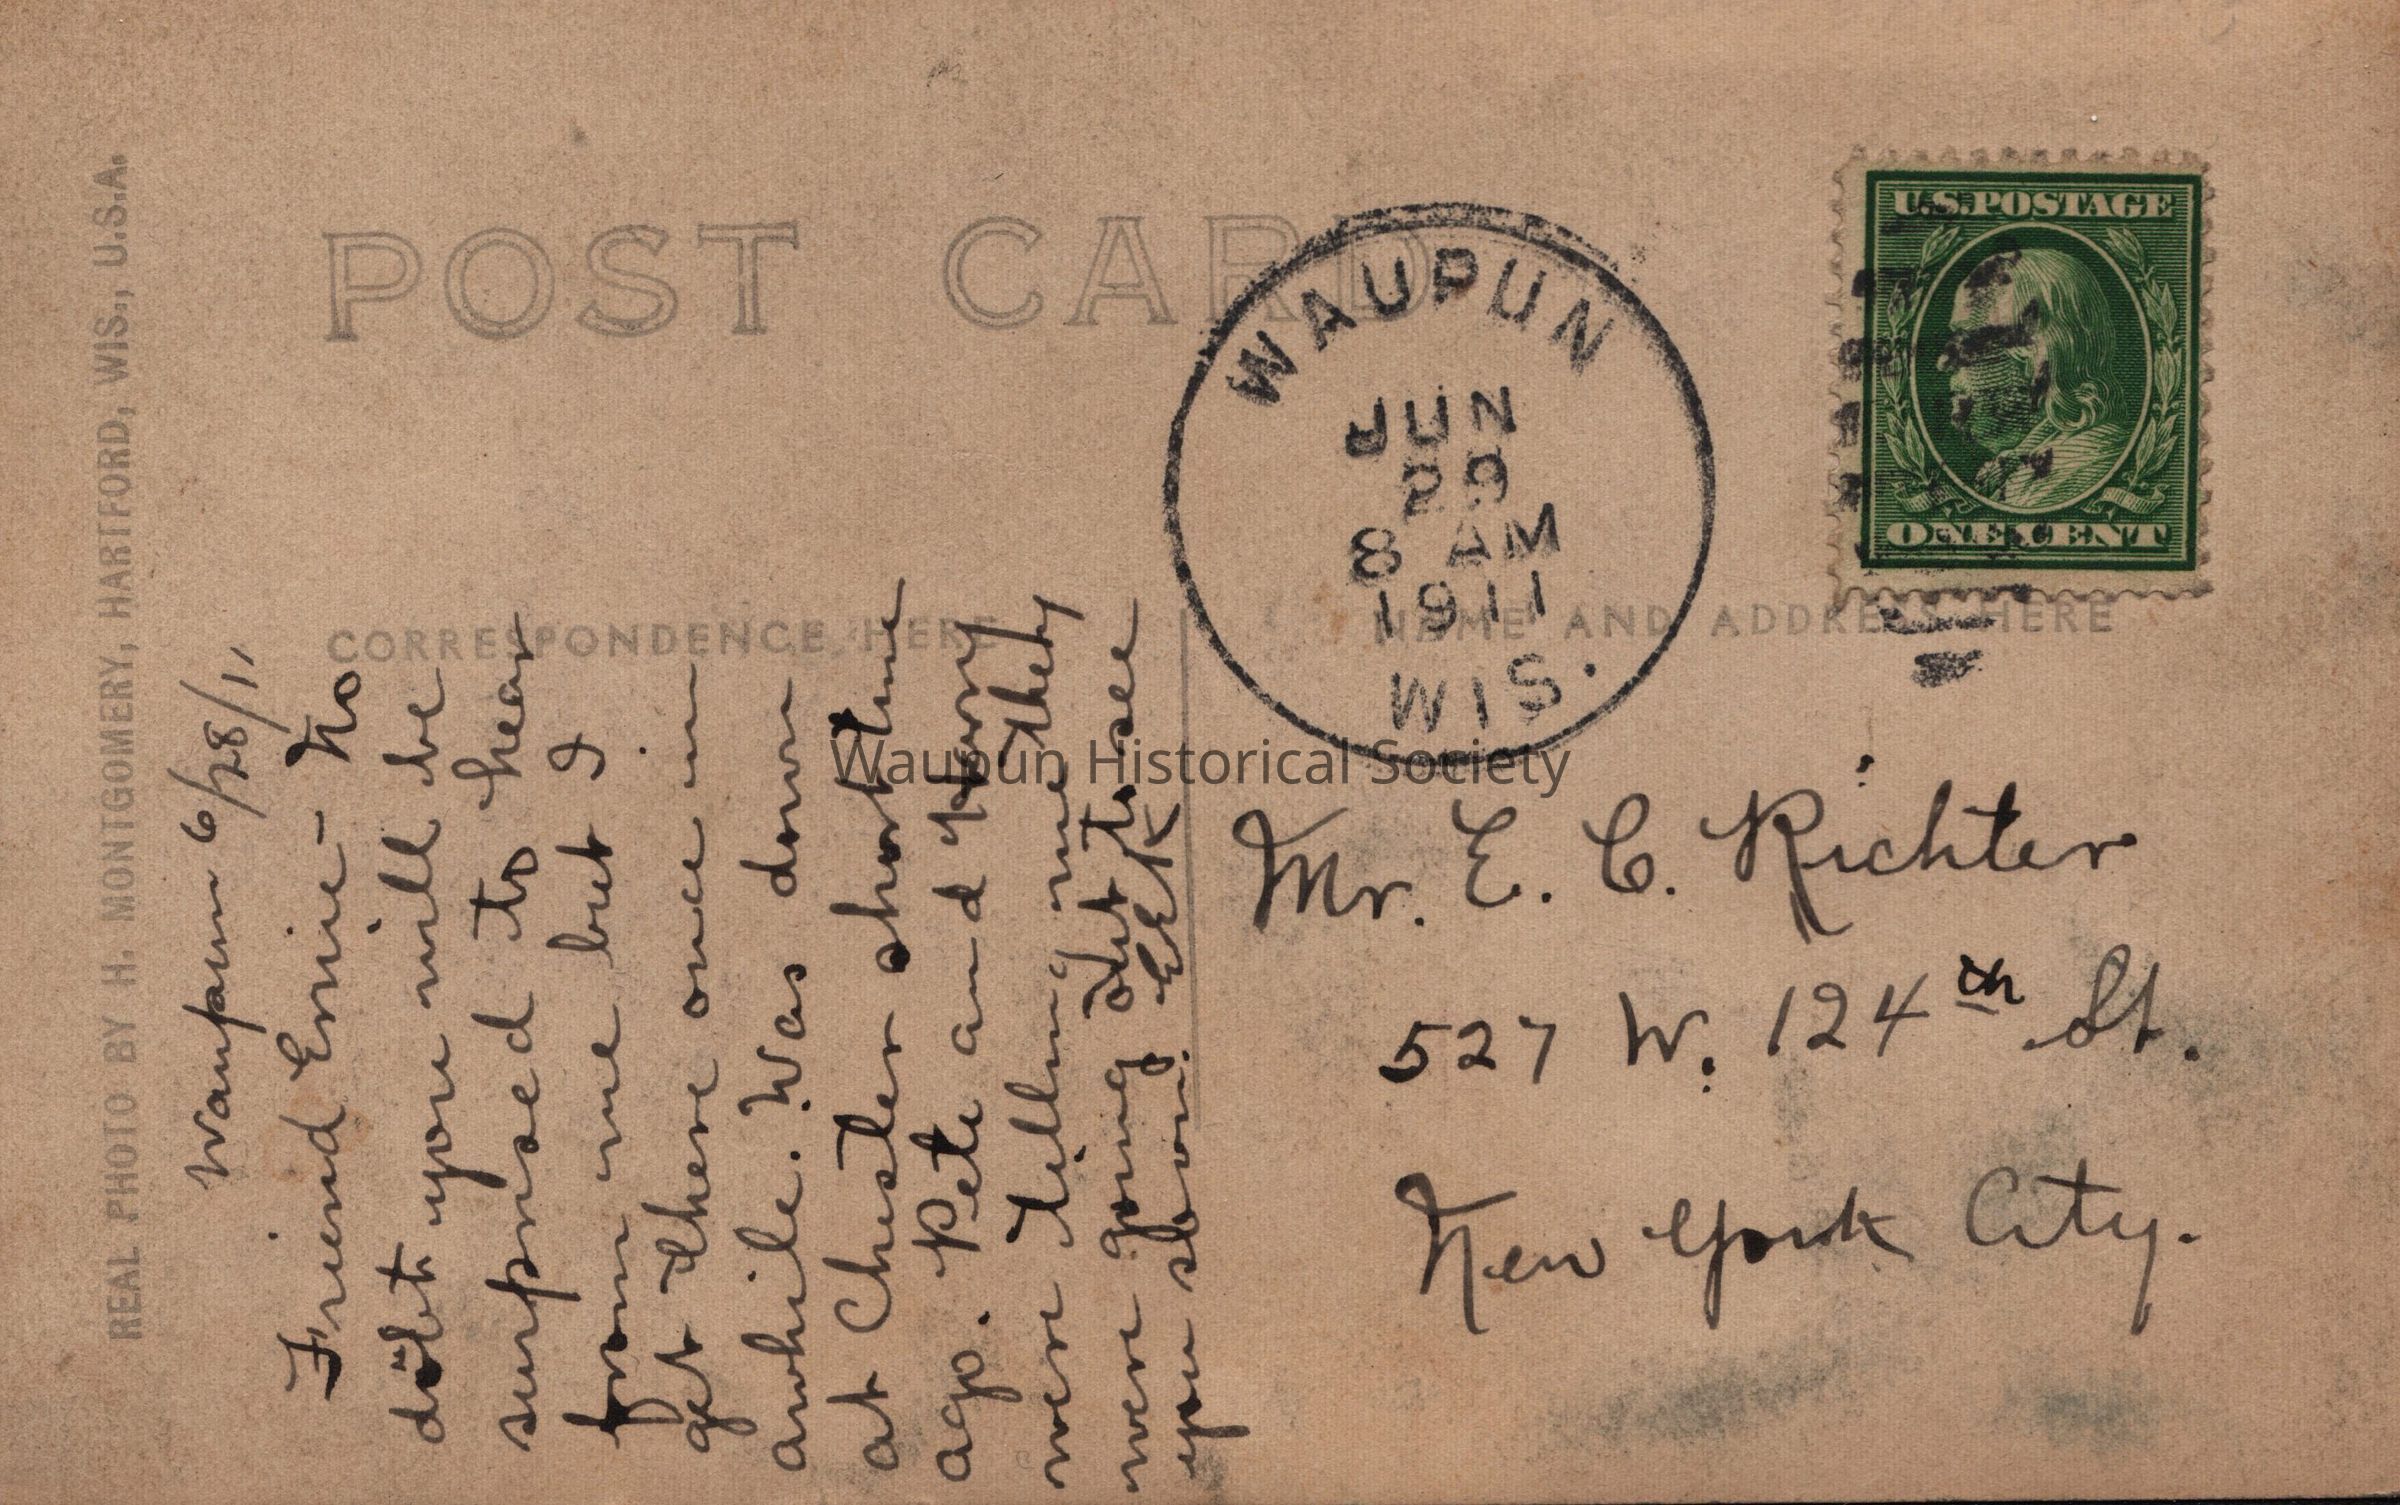 REAL PHOTO BY H. MONTGOMERY, HARTFORD, WIS., U.S.A.
POST CARD
CORRESPONDENCE HERE
NAME AND ADDRESS HERE
WAUPUN
JUN
29
8 AM
1911
WIS.
U.S.POSTAGE
ONE CENT
Waupun 6/28/11,
Friend Ernie - No
doubt you will be
surprised to hear
from me but I
get there once in
awhile. Was down
at Chester short time
ago. Pete and Harry
were telling me they
were going out to see
you soon. EEK
Mr. E. C. Richter
527 W. 124th St.
New York City.
Waupun Historical Society